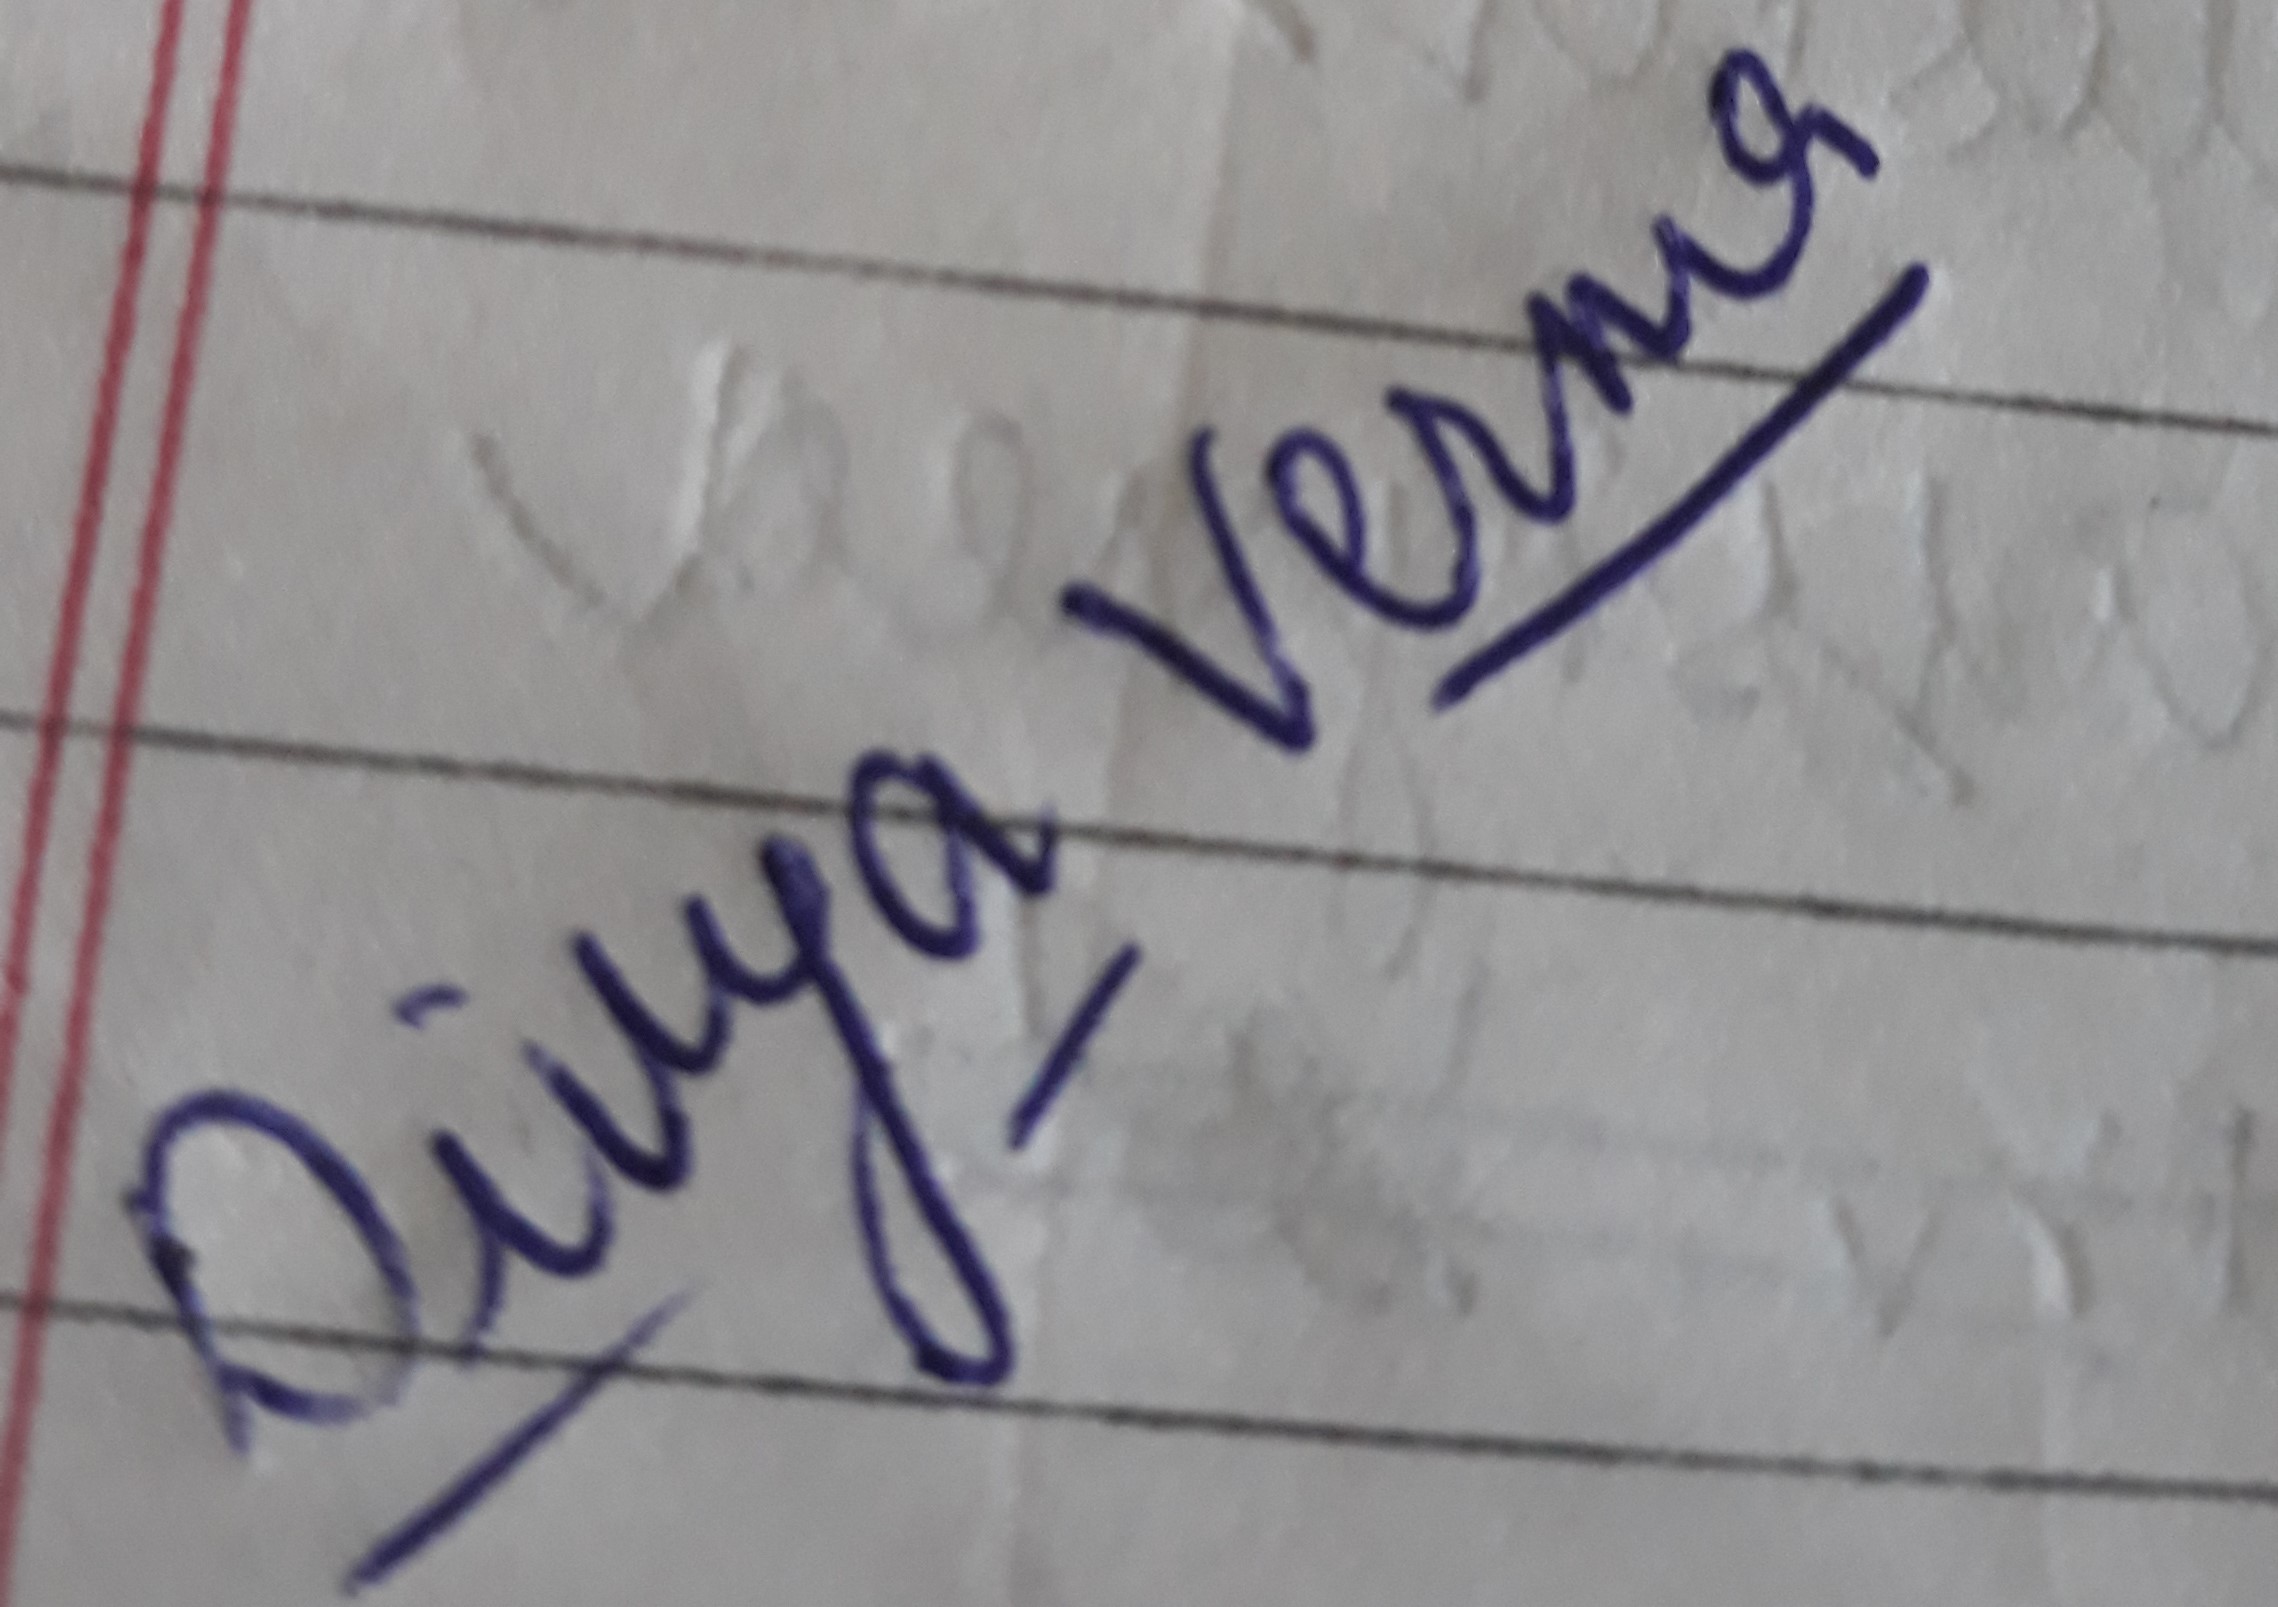 Divya Verma